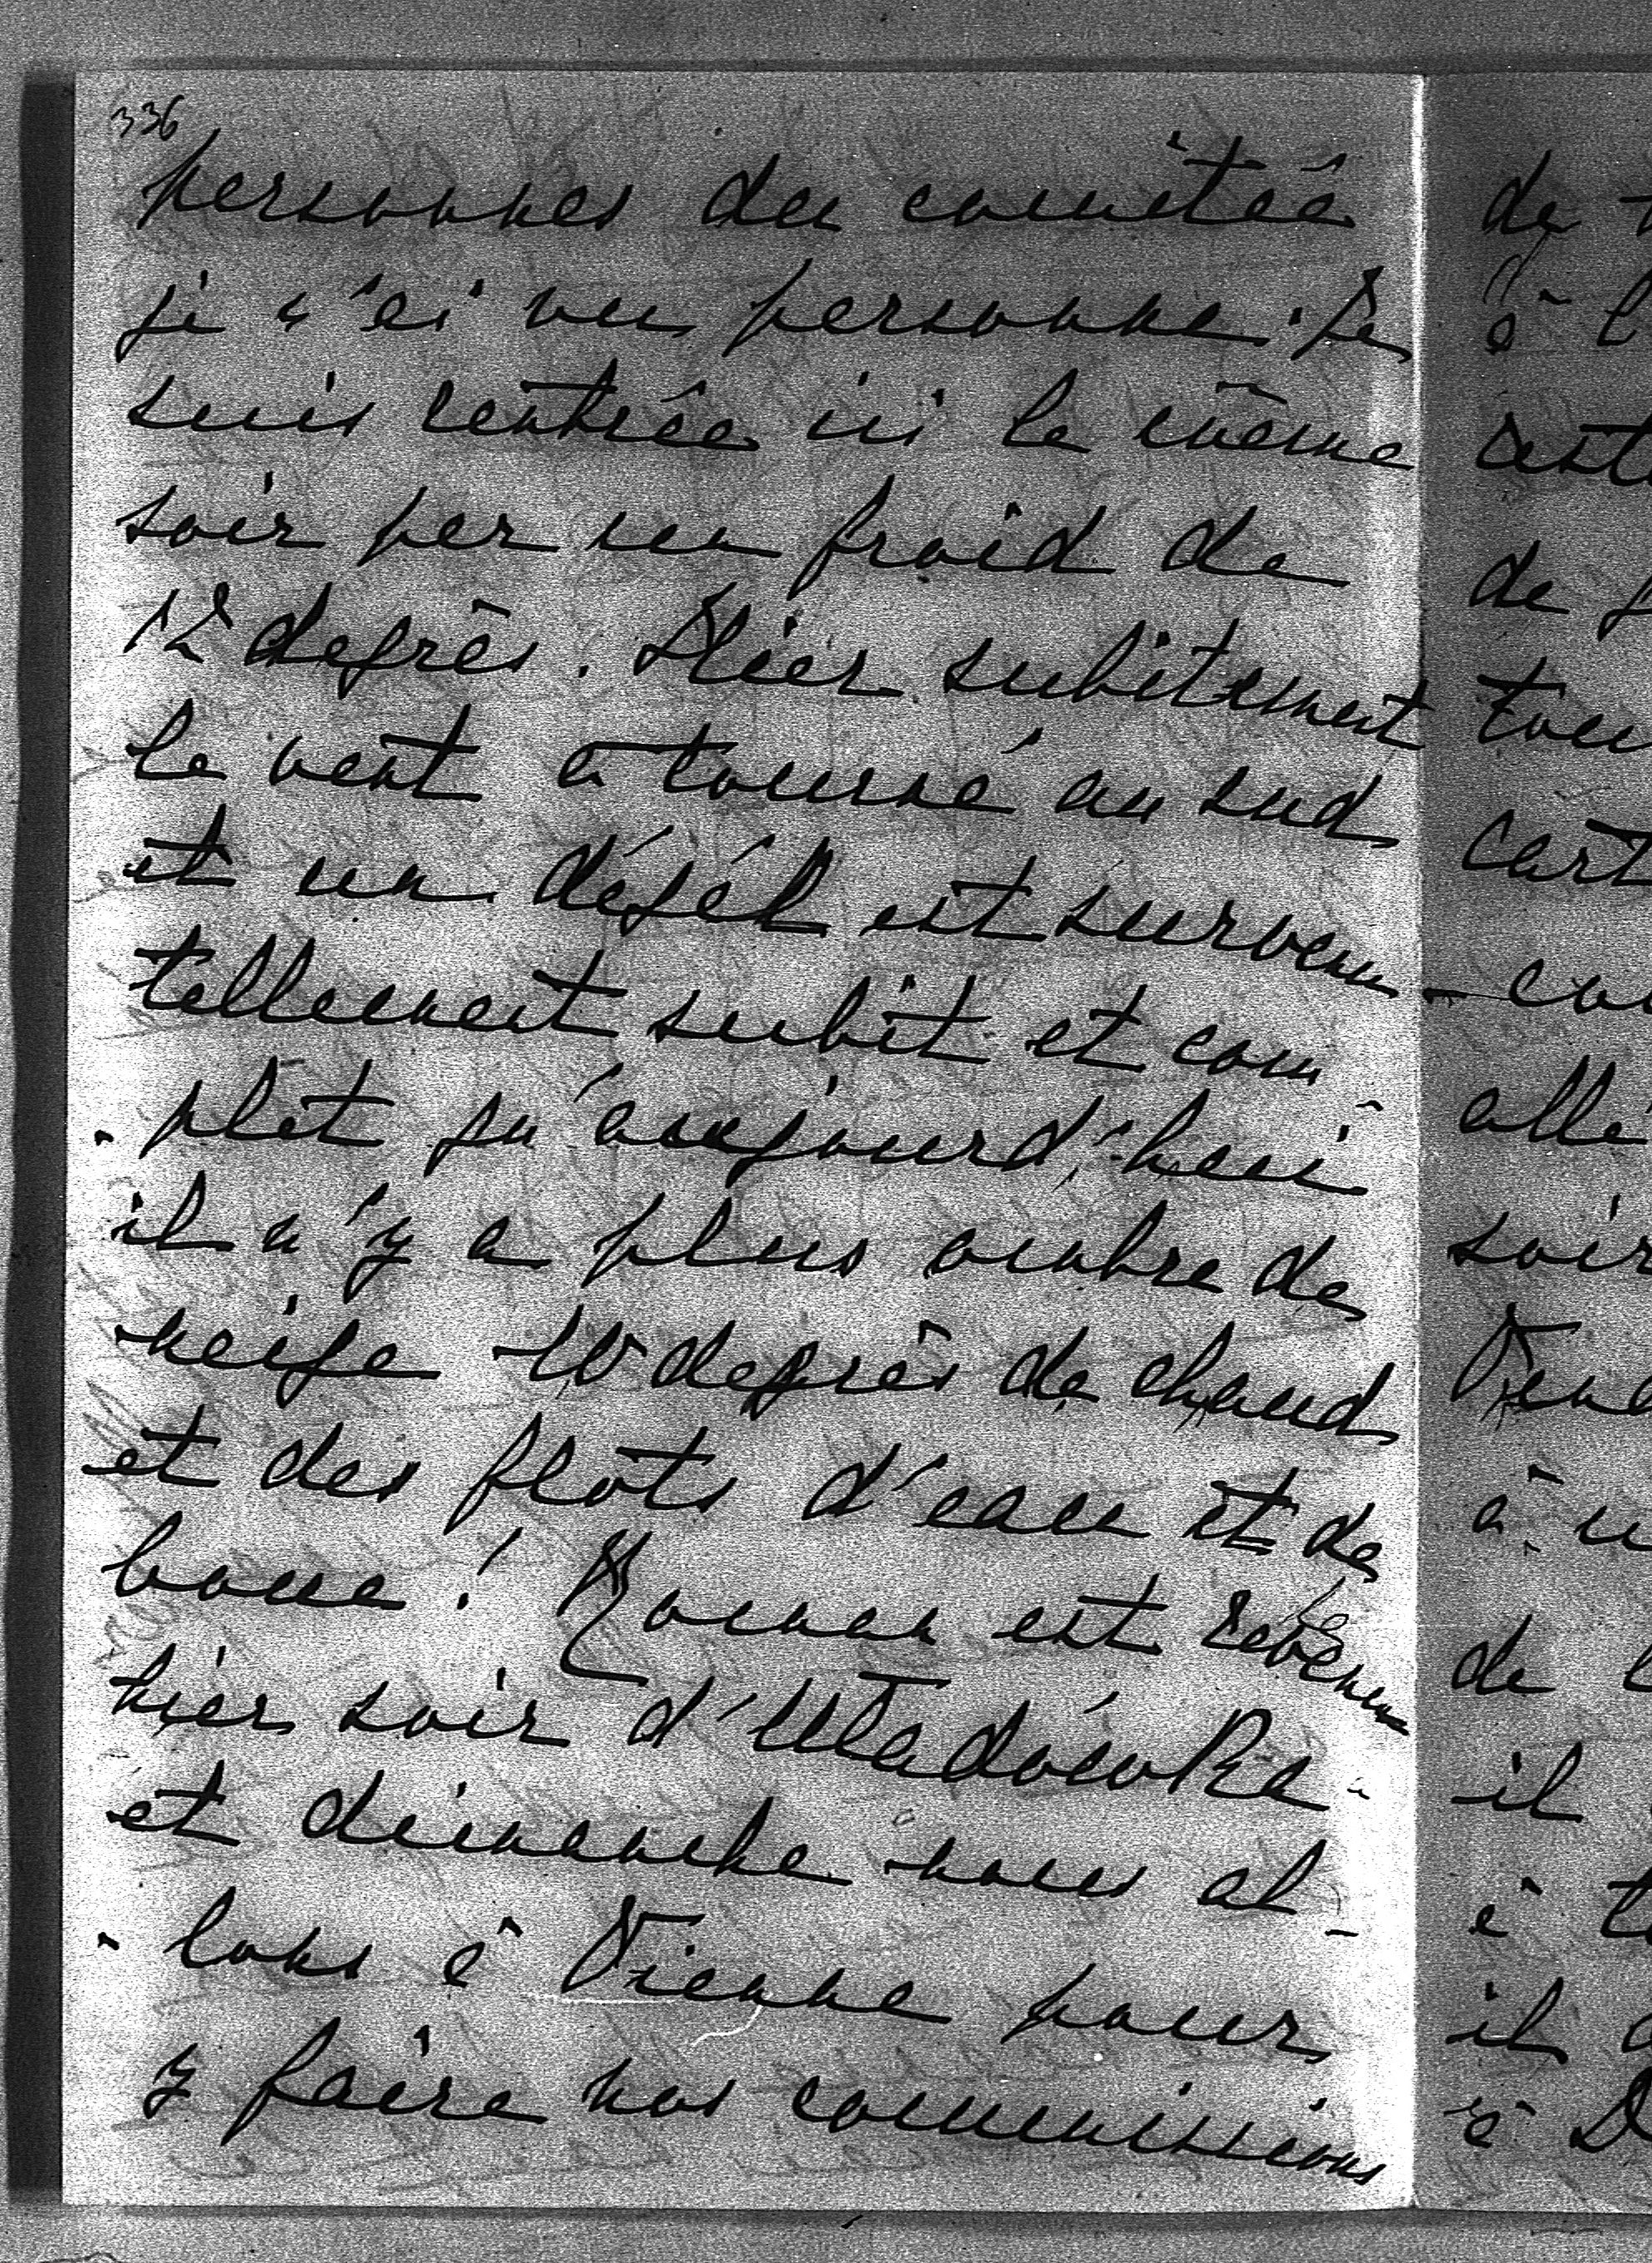 336
personnes du comitée
je n'ai vu personne. Je
suis rentrée ici le même
soir par un froid de
12 degrès. Hier subitement
le vent à tourné au sud
et un dégél est survenu
tellement subit et com
-plet qu'aujourd'hui
il n'y a plus ombre de
neige 10 degrès de chaud
et des flots d'eau et de
boue! Roman est revenu
hier soir d'Uladówka
et dimanche nous al-
-lons à Vienne pour
y faire nos commissions